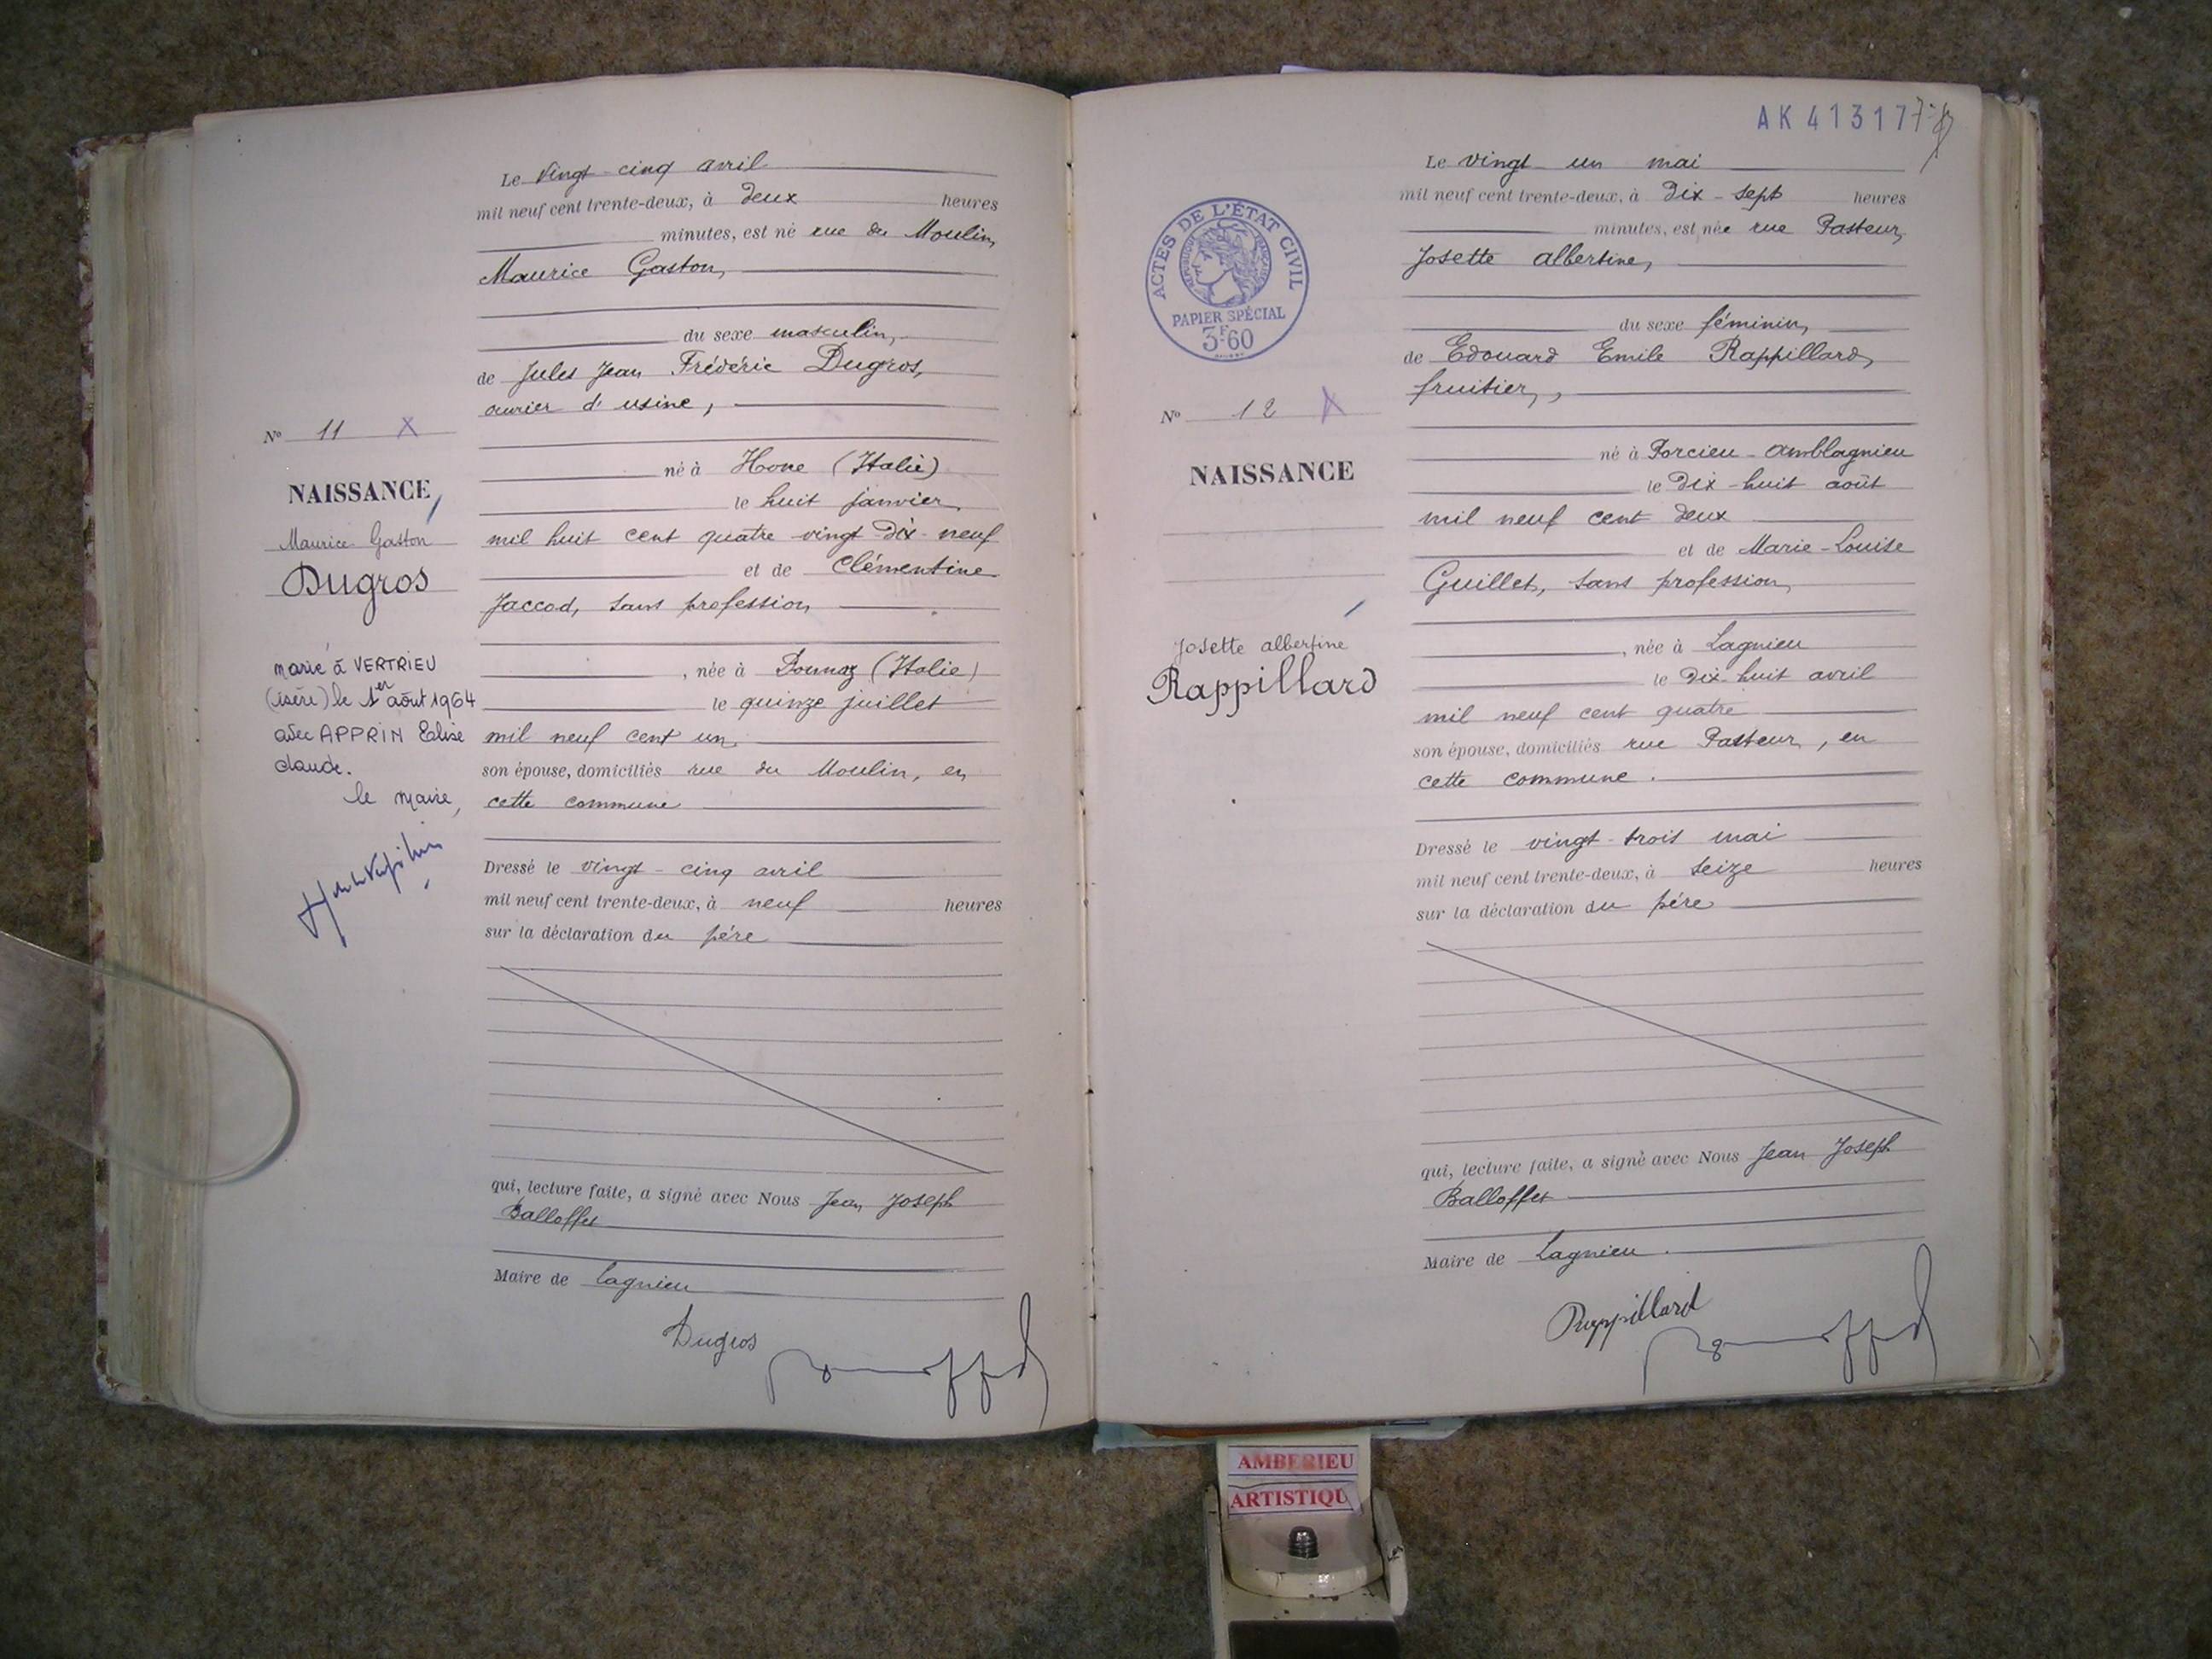 Le vingt-cinq avril
mil neuf cent trente-deux, à deux heures
minutes, est né rue du Moulin,
Maurice Gaston,
du sexe masculin,
de Jules Jean Frédéric Dugros,
ouvrier d'usine,
né à Hone (Italie)
le huit janvier
mil huit cent quatre vingt dix-neuf
et de Clémentine
Jaccod, sans profession
, née à Donnaz (Italie)
le quinze juillet
mil neuf cent un,
son épouse, domiciliés rue du Moulin, en
cette commune
Dressé le vingt-cinq avril
mil neuf cent trente-deux, à neuf heures
sur la déclaration du père
qui, lecture faite, a signé avec Nous Jean Joseph
Balloffet
Maire de Lagnieu
Dugros
No 11 X
NAISSANCE
Maurice Gaston
Dugros
marié à VERTRIEU
(isère) le 1er août 1964
avec APPRIN Elise
claude.
le maire,
AK 413177
Le vingt-un mai
mil neuf cent trente-deux, à dix-sept heures
minutes, est née rue Pasteur,
Josette albertine,
du sexe féminin,
de Edouard Emile Rappillard,
fruitier,,
né à Porcieu-Amblagnieu
le dix-huit août
mil neuf cent deux
et de Marie-Louise
Guillet, sans profession,
, née à Lagnieu
le dix-huit avril
mil neuf cent quatre
son épouse, domiciliés rue Pasteur, en
cette commune.
Dressé le vingt-trois mai
mil neuf cent trente-deux, à seize heures
sur la déclaration du père
qui, lecture faite, a signé avec Nous Jean Joseph
Balloffet
Maire de Lagnieu.
Rappillard
ACTES DE L'ÉTAT CIVIL
RÉPUBLIQUE FRANÇAISE
PAPIER SPÉCIAL
3F.60
No 12 X
NAISSANCE
Josette albertine
Rappillard
AMBERIEU
ARTISTIQU